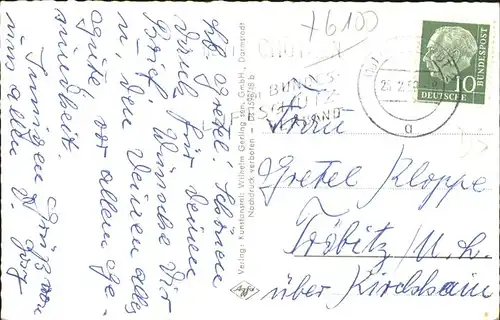 Lb. Gretel! Schönen
Dank für deinen
Brief. Wünsche Dir
u. den Deinen alles
gute, vor allem Ge-
sundheit
Innigen Gruß von
uns allen D.
Verlag: Kunstanstalt Wilhelm Gerling sen. GmbH. - Darmstadt
Nachdruck verboten -
+6100
BUNDES-
DEUTSCHE BUNDESPOST
10
a
Frau
Gretel Kloppe
Tröbitz N. L.
über Kirchhain